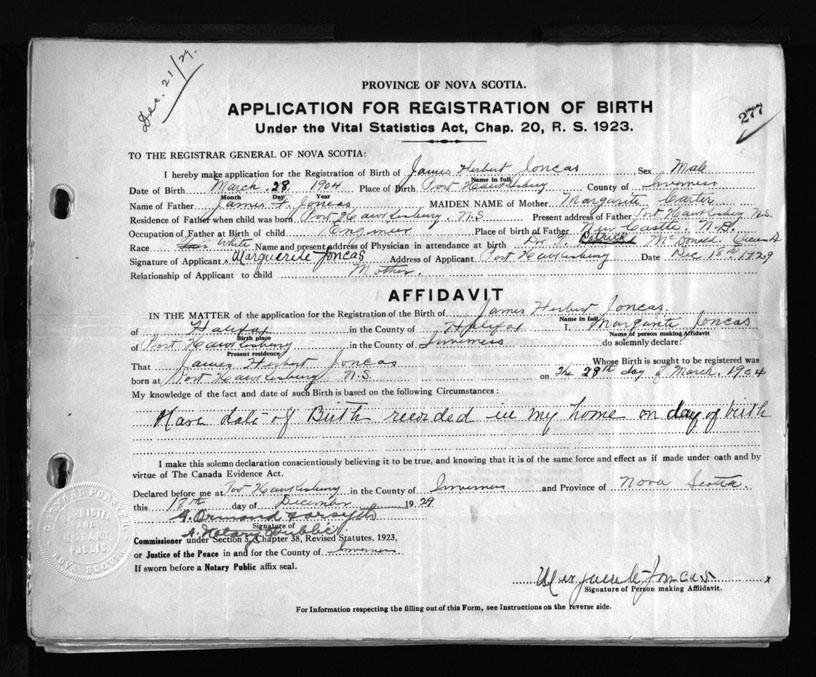 Dec. 21/29.
277
PROVINCE OF NOVA SCOTIA.
APPLICATION FOR REGISTRATION OF BIRTH
Under the Vital Statistics Act, Chap. 20, R. S. 1923.
TO THE REGISTRAR GENERAL OF NOVA SCOTIA:
I hereby make application for the Registration of Birth of James Herbert Joncas Sex Male
Name in full
Date of Birth March 28 1904 Place of Birth Port Hawkesbury County of Inverness
Month Day Year
Name of Father James F. Joncas MAIDEN NAME of Mother Margurite Carter
Residence of Father when child was born Port Hawkesbury N.S Present address of Father Port Hawkesbury N.S.
Occupation of Father at Birth of child Engineer Place of birth of Father New Castle. N.B.
Race White Name and present address of Physician in attendance at birth Dr. P. McDonald
Signature of Applicant x Marguerite Joncas Address of Applicant Port Hawkesbury Date Dec 1929
Relationship of Applicant to child Mother.
AFFIDAVIT
IN THE MATTER of the application for the Registration of the Birth of James Herbert Joncas
Name in full
of Halifax in the County of Halifax I, Margurite Joncas
Birth place Name of person making Affidavit
of Port Hawkesbury in the County of Inverness do solemnly declare:
Present residence
That James Herbert Joncas Whose Birth is sought to be registered was
born at Port Hawkesbury N.S. on The 28th day of March. 1904
My knowledge of the fact and date of such Birth is based on the following Circumstances:
Have date of Birth recorded in my home on day of birth
I make this solemn declaration conscientiously believing it to be true, and knowing that it is of the same force and effect as if made under oath and by
virtue of The Canada Evidence Act.
Declared before me at Port Hawkesbury in the County of Inverness and Province of Nova Scotia.
this 17th day of December 1929
G. Ormond Forsyth
Signature of
A Notary Public
Commissioner under Section 5, Chapter 38, Revised Statutes, 1923,
or Justice of the Peace in and for the County of Inverness
If sworn before a Notary Public affix seal.
BARRISTER
AND
NOTARY
PUBLIC
NOVA SCOTIA
Marguerite Joncas x
Signature of Person making Affidavit.
For Information respecting the filling out of this Form, see Instructions on the reverse side.